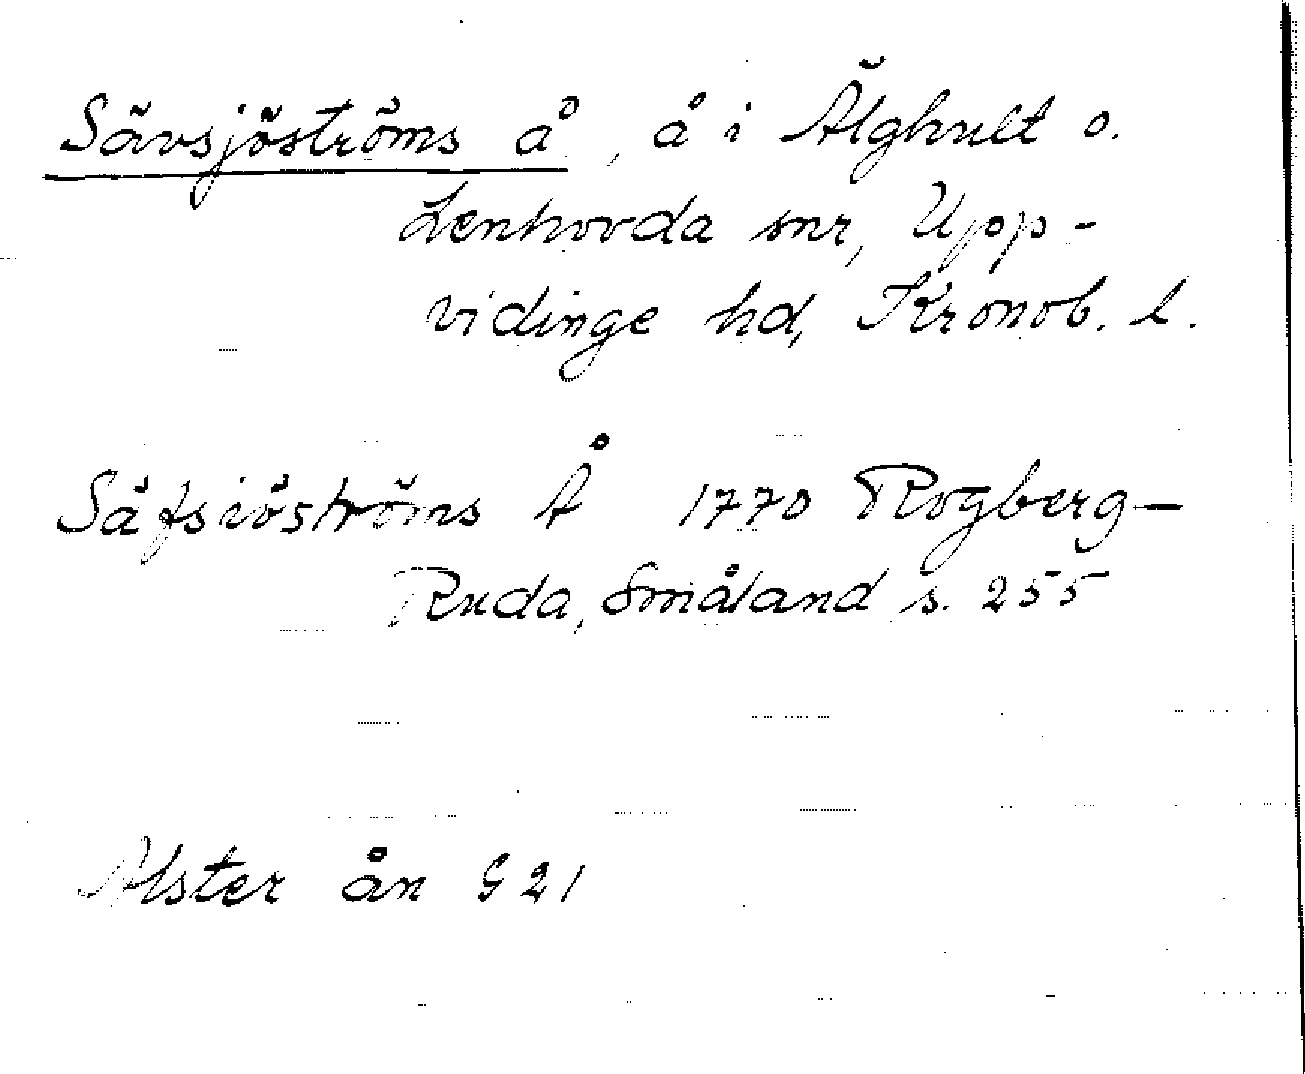 Sävsjöströms å, å i Älghult o.
Lenhovda snr, Upp-
vidinge hd, Kronob. l.
Säfsiöströms Å 1770 Rogberg-
Ruda, Småland s. 255
Alsterån G 21